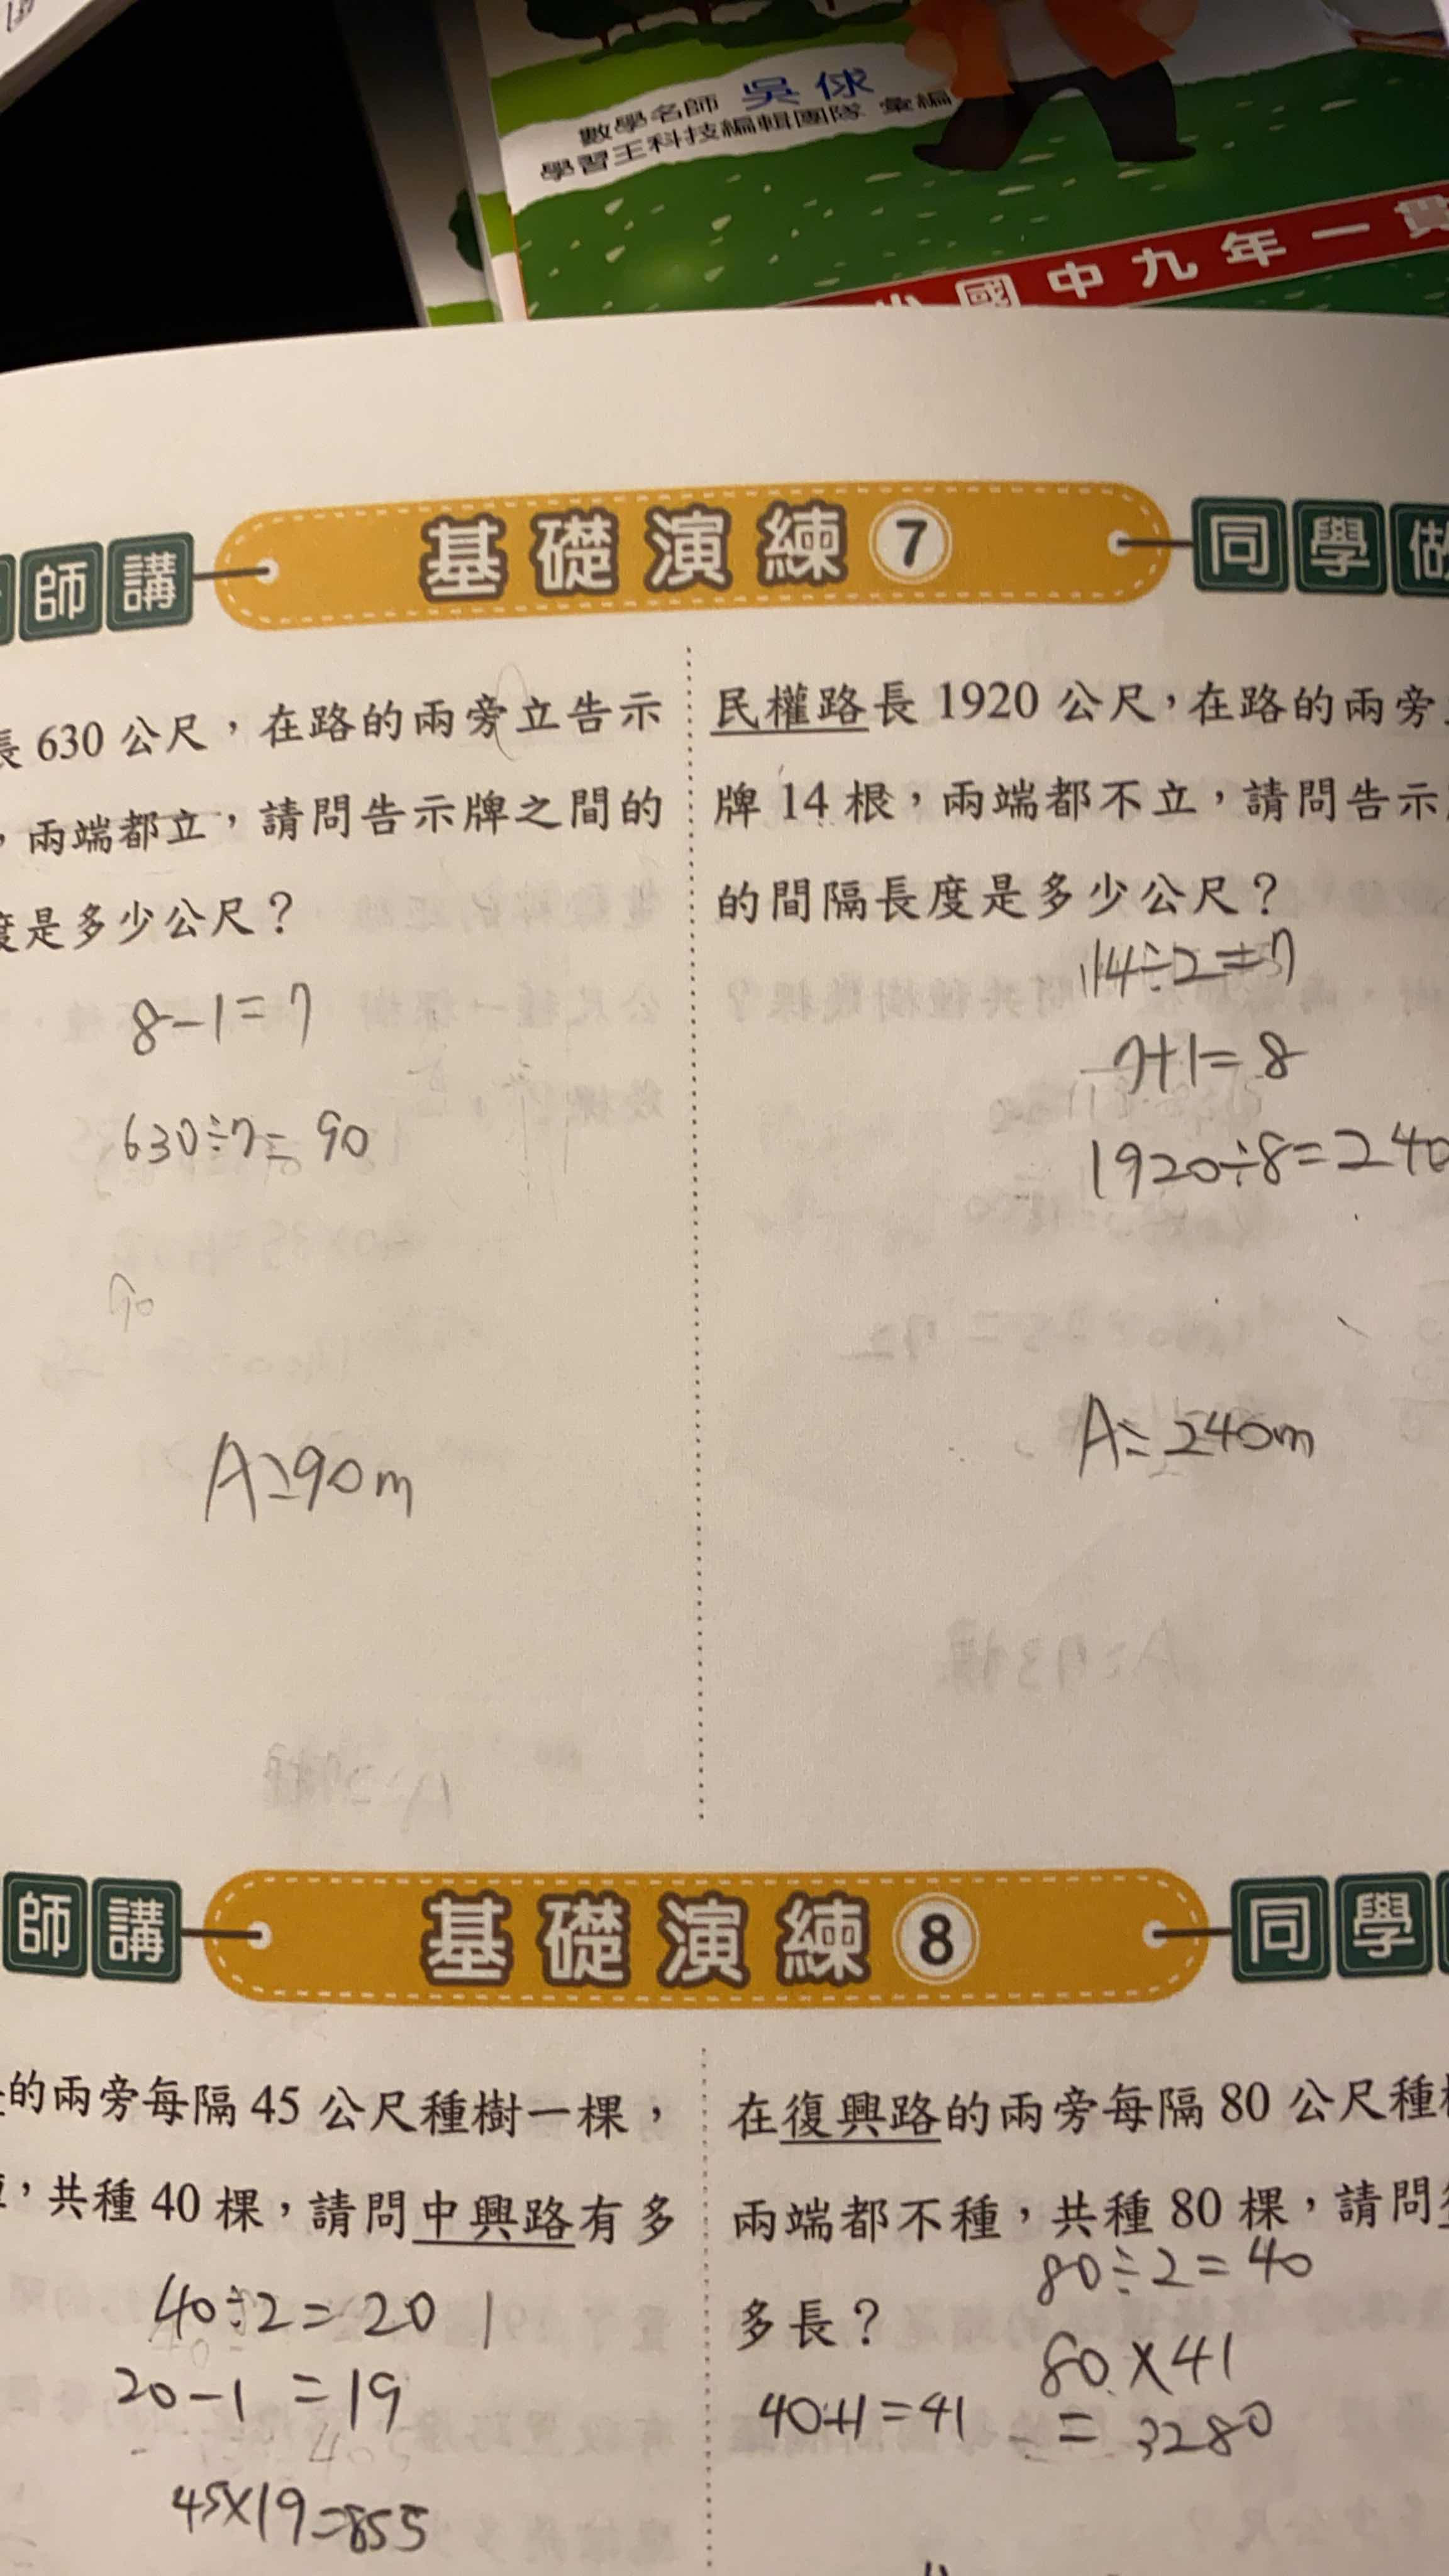 數學名師 吳俅
學習王科技編輯團隊 彙編
國中九年一貫
師講
基礎演練 7
同學做
長630公尺,在路的兩旁立告示
,兩端都立,請問告示牌之間的
度是多少公尺?
8-1=7
630÷7=90
90
A=90m
民權路長1920公尺,在路的兩旁
牌14根,兩端都不立,請問告示
的間隔長度是多少公尺?
14÷2=7
7+1=8
1920÷8=240
A=240m
師講
基礎演練 8
同學
的兩旁每隔45公尺種樹一棵,
,共種40棵,請問中興路有多
40÷2=20
20-1=19
45×19=855
在復興路的兩旁每隔80公尺種
兩端都不種,共種80棵,請問
多長?
80÷2=40
40+1=41
80×41
=3280